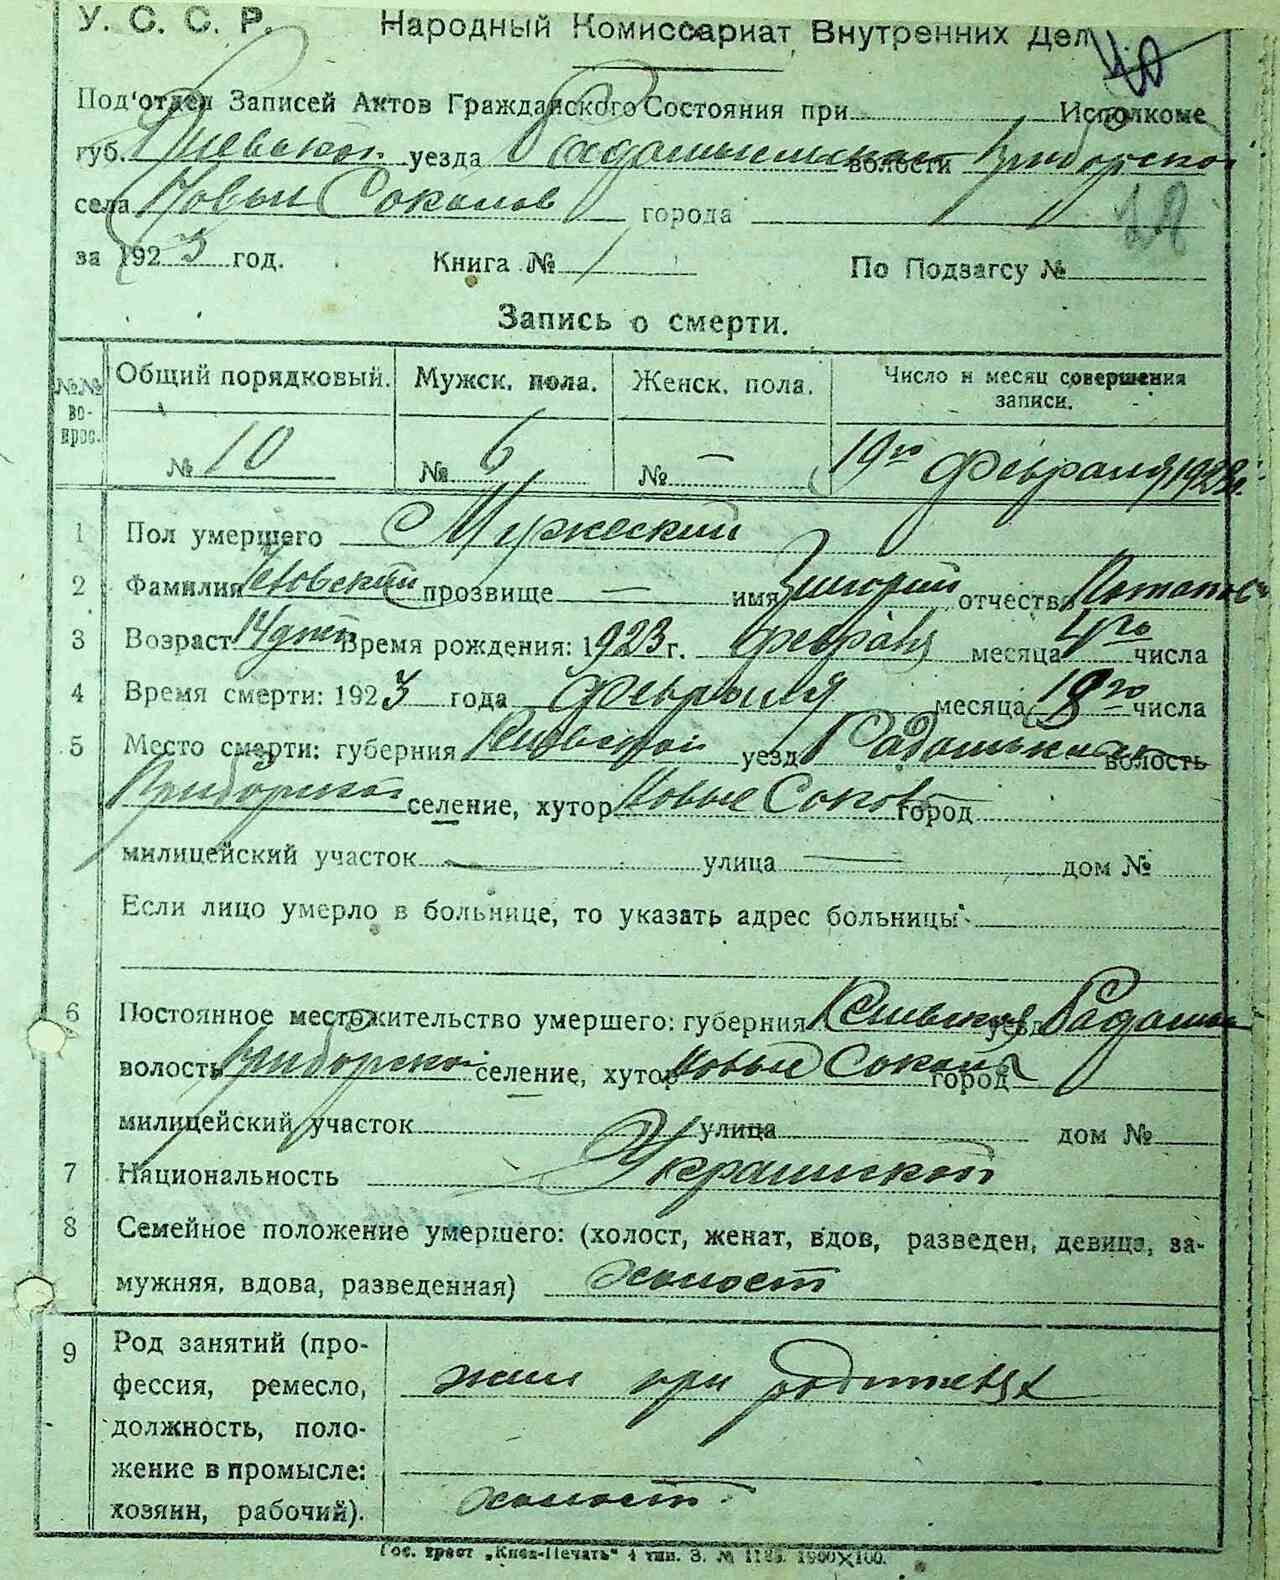 У. С. С. Р. Народный Комиссариат Внутренних Дел
40
Под'отдел Записей Актов Гражданского Состояния при Исполкоме
губ. Киевской уезда Радомысльской волости Приборской
села Новых Соколов города
18
за 1923 год. Книга № 1 По Подзагсу №
Запись о смерти.
№№ во-прос. Общий порядковый. Мужск. пола. Женск. пола. Число и месяц совершения записи.
№ 10 № 6 № — 19го февраля 1923 г.
1 Пол умершего Мужеский
2 Фамилия прозвище — имя Григорий отчество
3 Возраст 14 дней Время рождения: 1923 г. февраля месяца 4го числа
4 Время смерти: 1923 года февраля месяца 18го числа
5 Место смерти: губерния Киевской уезд волость
Приборской селение, хутор Новые город
милицейский участок — улица — дом №
Если лицо умерло в больнице, то указать адрес больницы
6 Постоянное местожительство умершего: губерния Киевская уезд
волость Приборской селение, хутор Новые город
милицейский участок улица дом №
7 Национальность
8 Семейное положение умершего: (холост, женат, вдов, разведен, девица, за-
мужняя, вдова, разведенная) холост
9 Род занятий (про-
фессия, ремесло, жил при родителях
должность, поло-
жение в промысле:
хозяин, рабочий). холост
Гос. трест „Киев-Печать" 4 тип. З. № 1900×100.